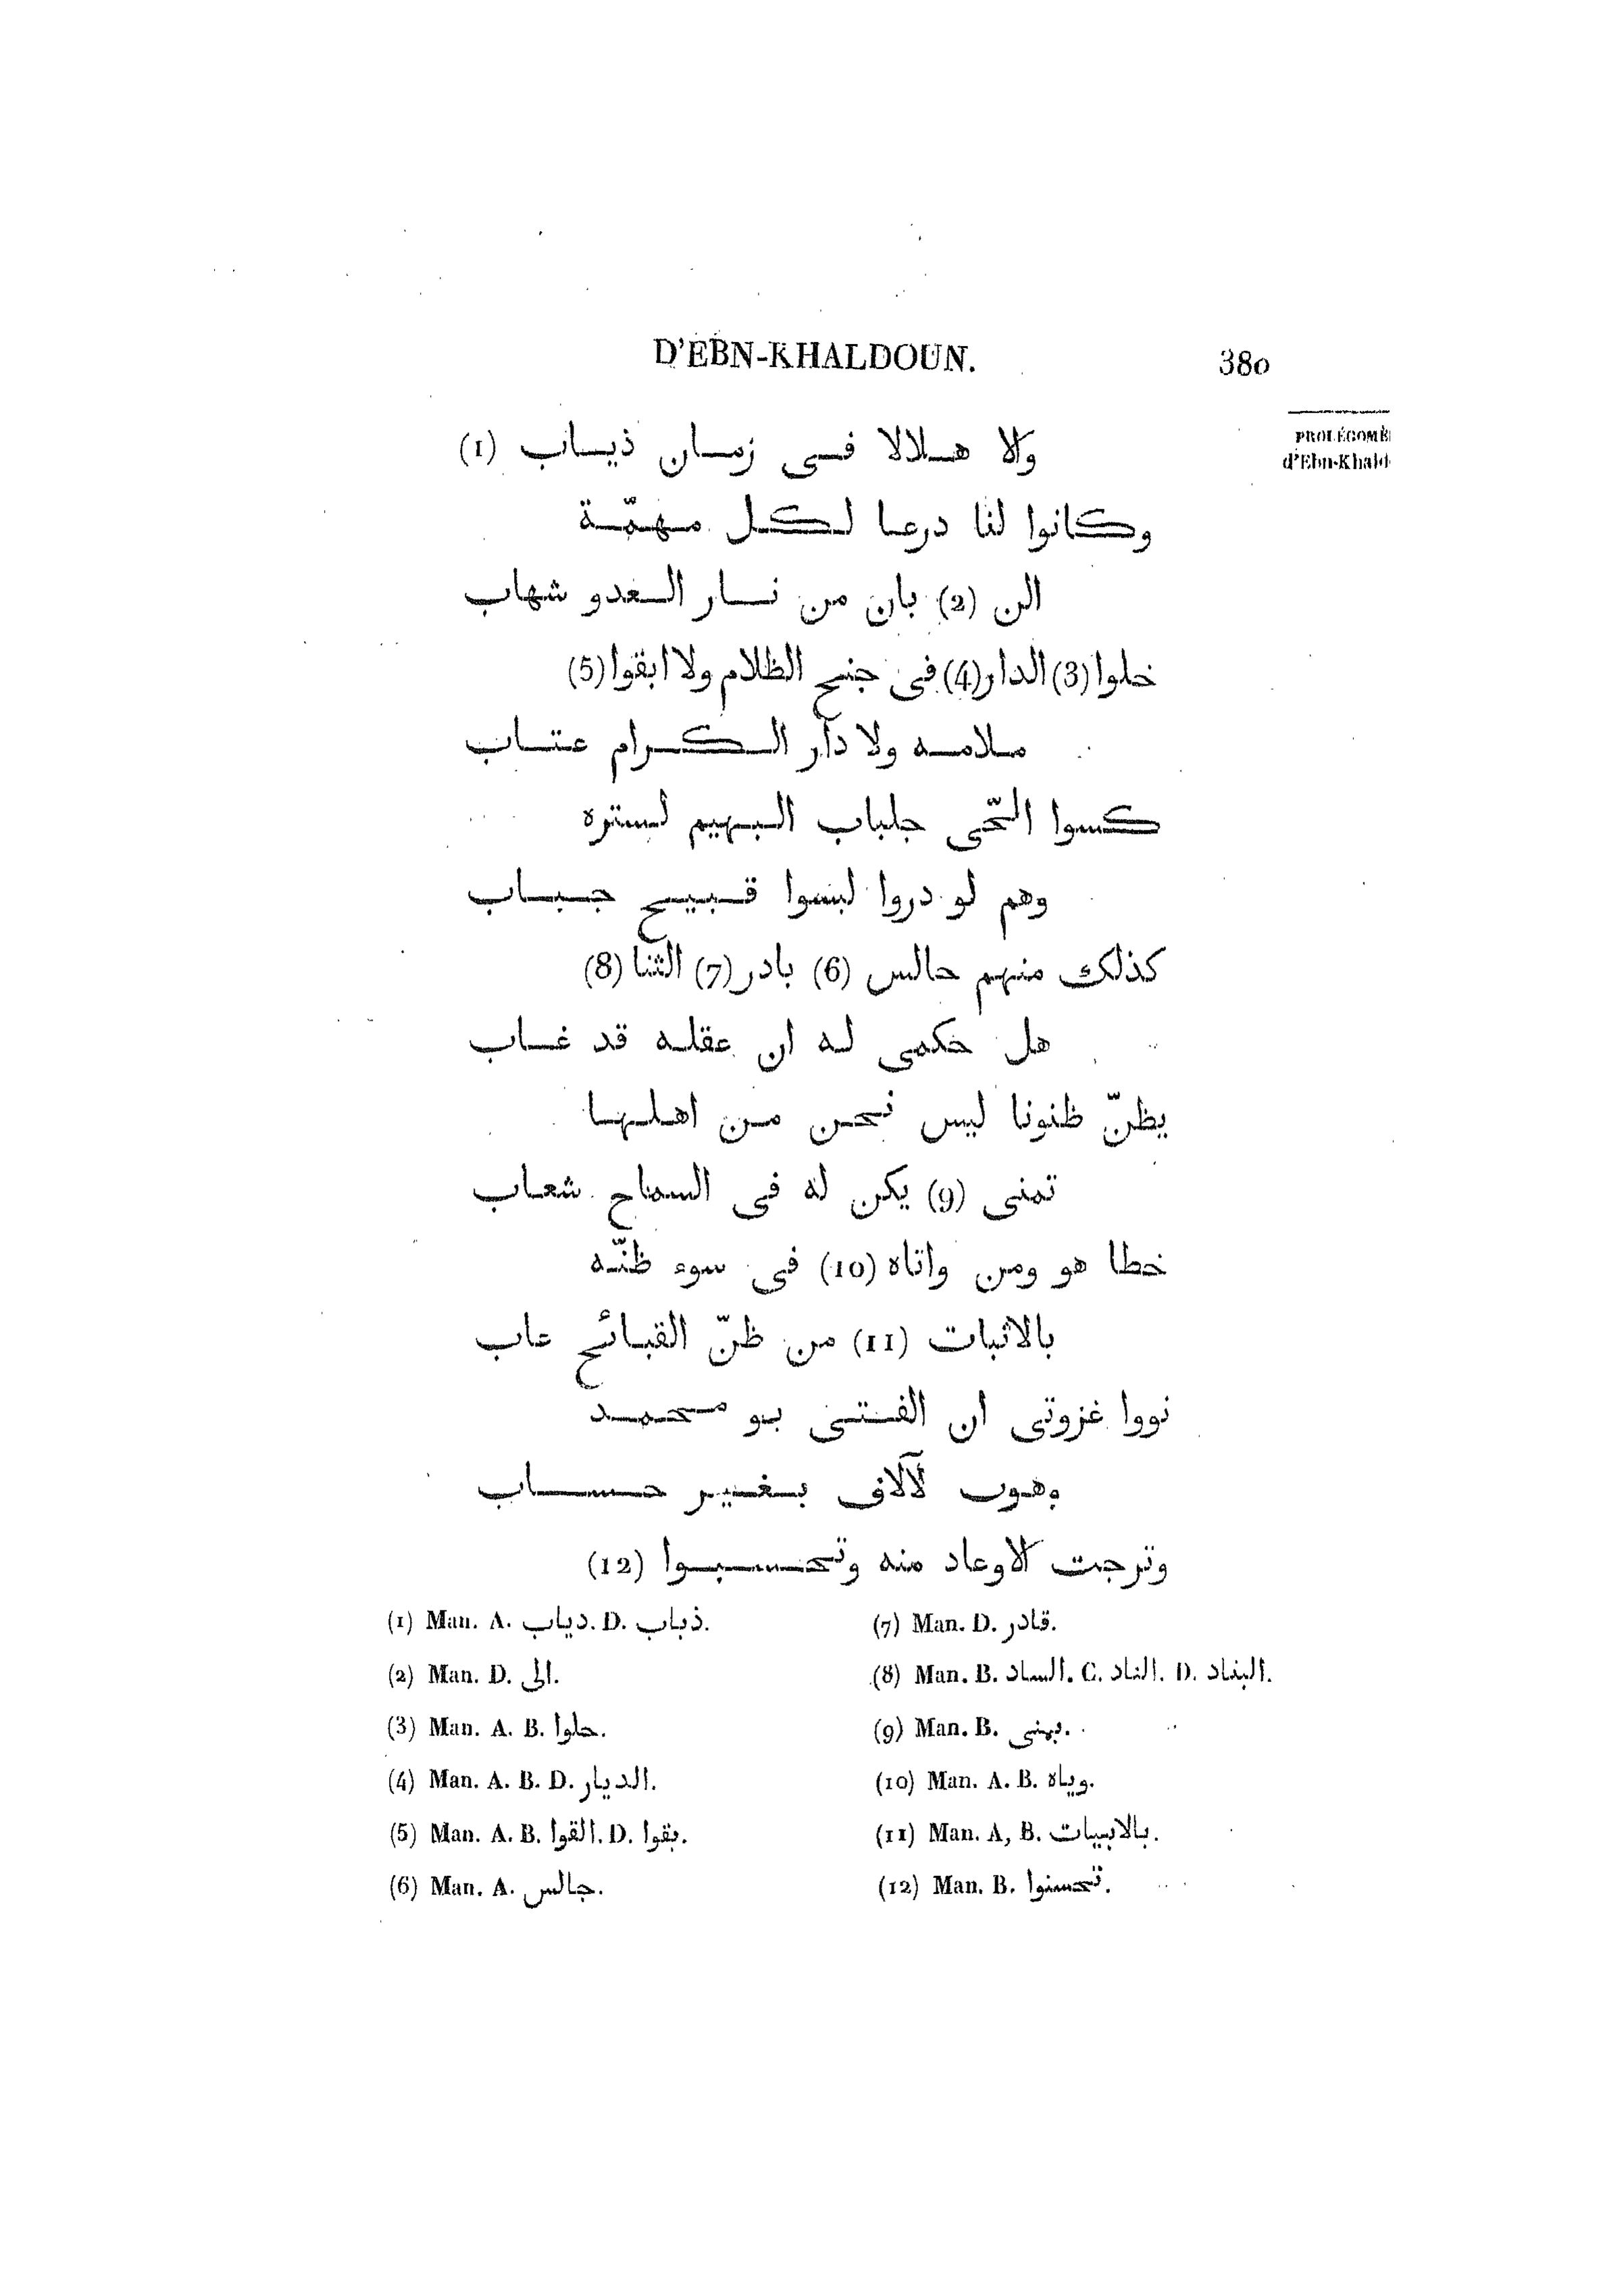 D'EBN-KHALDOUN. 380
PROLÉGOMÈ
d'Ebn-Khald
ولا هلالا فى زمان ذياب (1)
وكانوا لنا درعا لكل مهمّة
الن (2) بان من نار العدو شهاب
خلوا (3) الدار (4) فى جنح الظلام ولا ابقوا (5)
ملامه ولا دار الكرام عتاب
كسوا الحّى جلباب البهيم لستره
وهم لو دروا لبسوا قبيح جباب
كذلك منهم حالس (6) بادر (7) الثنا (8)
هل حكمى له ان عقله قد غاب
يظنّ ظنونا ليس نحن من اهلها
تمنى (9) يكن له فى السماح شعاب
خطا هو ومن واتاه (10) فى سوء ظنّه
بالاثبات (11) من ظنّ القبائح عاب
نووا غزوتى ان الفتى بو محمد
وهوب لآلاف بغير حساب
وترجت الاوعاد منه وتحسبوا (12)
(1) Man. A. دياب. D. ذباب.
(2) Man. D. الى.
(3) Man. A. B. حلوا.
(4) Man. A. B. D. الديار.
(5) Man. A. B. القوا. D. بقوا.
(6) Man. A. جالس.
(7) Man. D. قادر.
(8) Man. B. الساد. C. الناد. D. البناد.
(9) Man. B. بهنى.
(10) Man. A. B. وياه.
(11) Man. A, B. بالابيات.
(12) Man. B. تحسنوا.